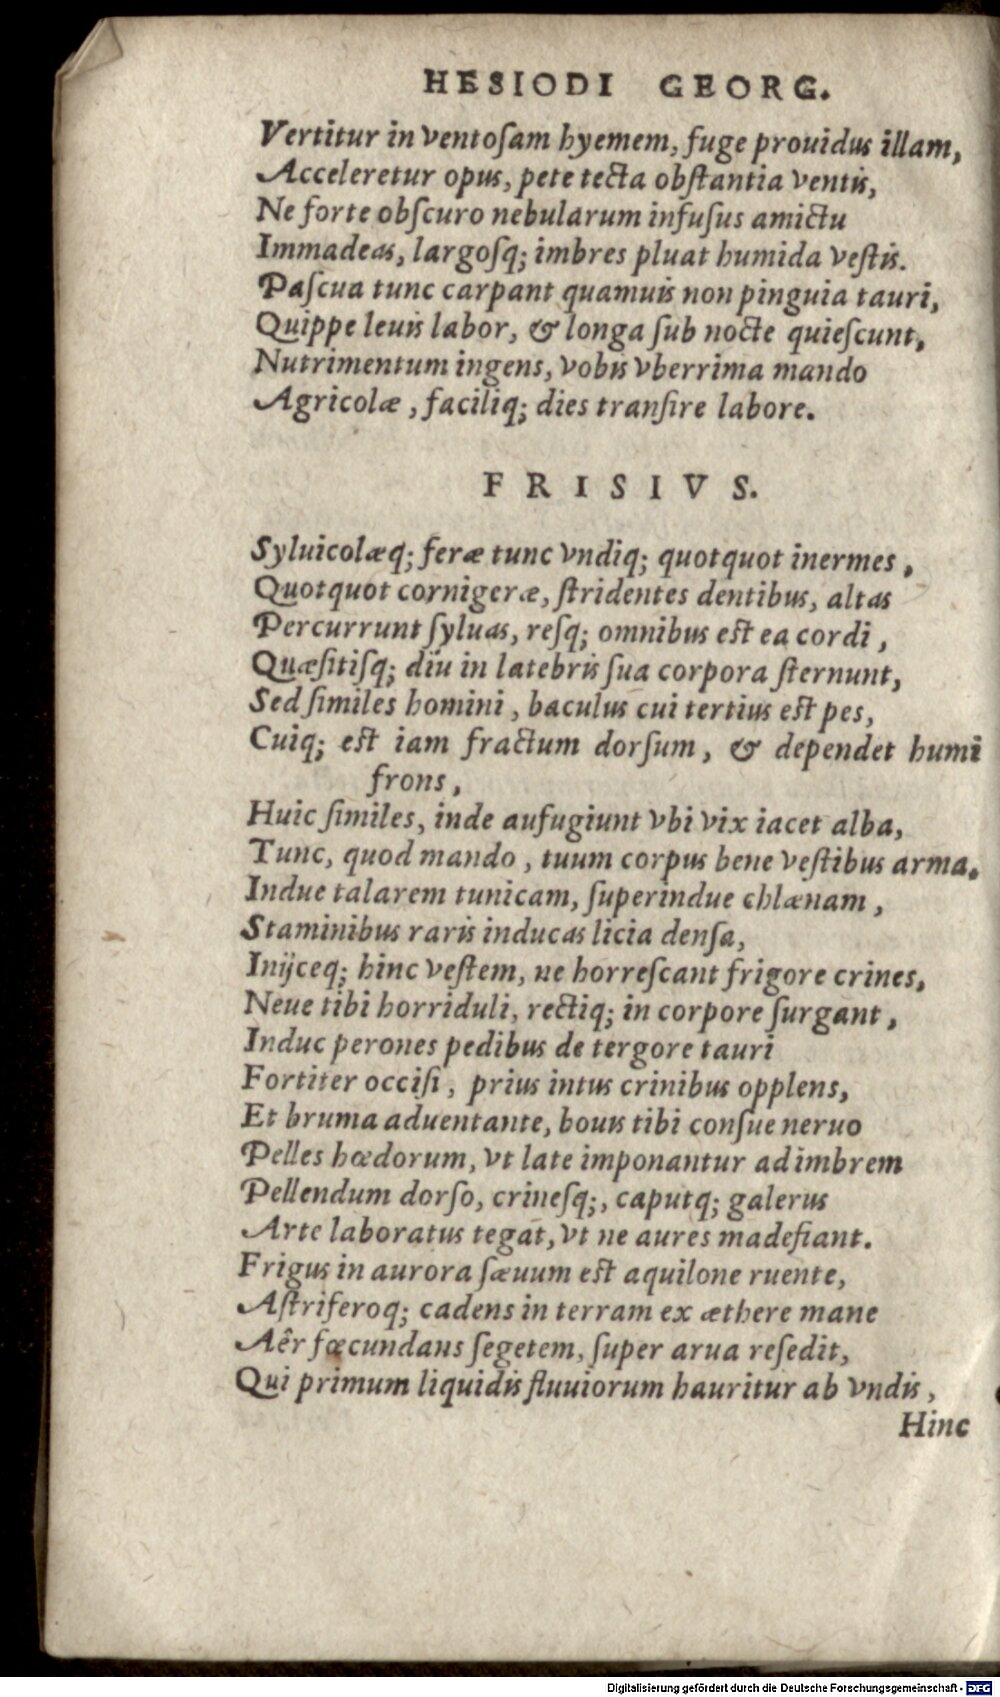 HESIODI GEORG.
Vertitur in ventoſam hyemem, fuge prouidus illam,
Acceleretur opus, pete tecta obſtantia ventis,
Ne forte obſcuro nebularum infuſus amictu
Immadeas, largoſq; imbres pluat humida veſtis.
Paſcua tunc carpant quamuis non pinguia tauri,
Quippe leuis labor, & longa ſub nocte quieſcunt,
Nutrimentum ingens, vobis vberrima mando
Agricolæ, faciliq; dies tranſire labore.
FRISIVS.
Syluicolæq; feræ tunc vndiq; quotquot inermes,
Quotquot cornigeræ, ſtridentes dentibus, altas
Percurrunt ſyluas, reſq; omnibus eſt ea cordi,
Quæſitiſq; diu in latebris ſua corpora ſternunt,
Sed ſimiles homini, baculus cui tertius eſt pes,
Cuiq; eſt iam fractum dorſum, & dependet humi
frons,
Huic ſimiles, inde aufugiunt vbi vix iacet alba,
Tunc, quod mando, tuum corpus bene veſtibus arma.
Indue talarem tunicam, ſuperindue chlænam,
Staminibus raris inducas licia denſa,
Inijceq; hinc veſtem, ne horreſcant frigore crines,
Neue tibi horriduli, rectiq; in corpore ſurgant,
Induc perones pedibus de tergore tauri
Fortiter occiſi, prius intus crinibus opplens,
Et bruma aduentante, bouis tibi conſue neruo
Pelles hœdorum, vt late imponantur ad imbrem
Pellendum dorſo, crineſq;, caputq; galerus
Arte laboratus tegat, vt ne aures madefiant.
Frigus in aurora ſæuum eſt aquilone ruente,
Aſtriferoq; cadens in terram ex æthere mane
Aêr fœcundans ſegetem, ſuper arua reſedit,
Qui primum liquidis fluuiorum hauritur ab vndis,
Hinc
Digitalisierung gefördert durch die Deutsche Forschungsgemeinschaft - DFG